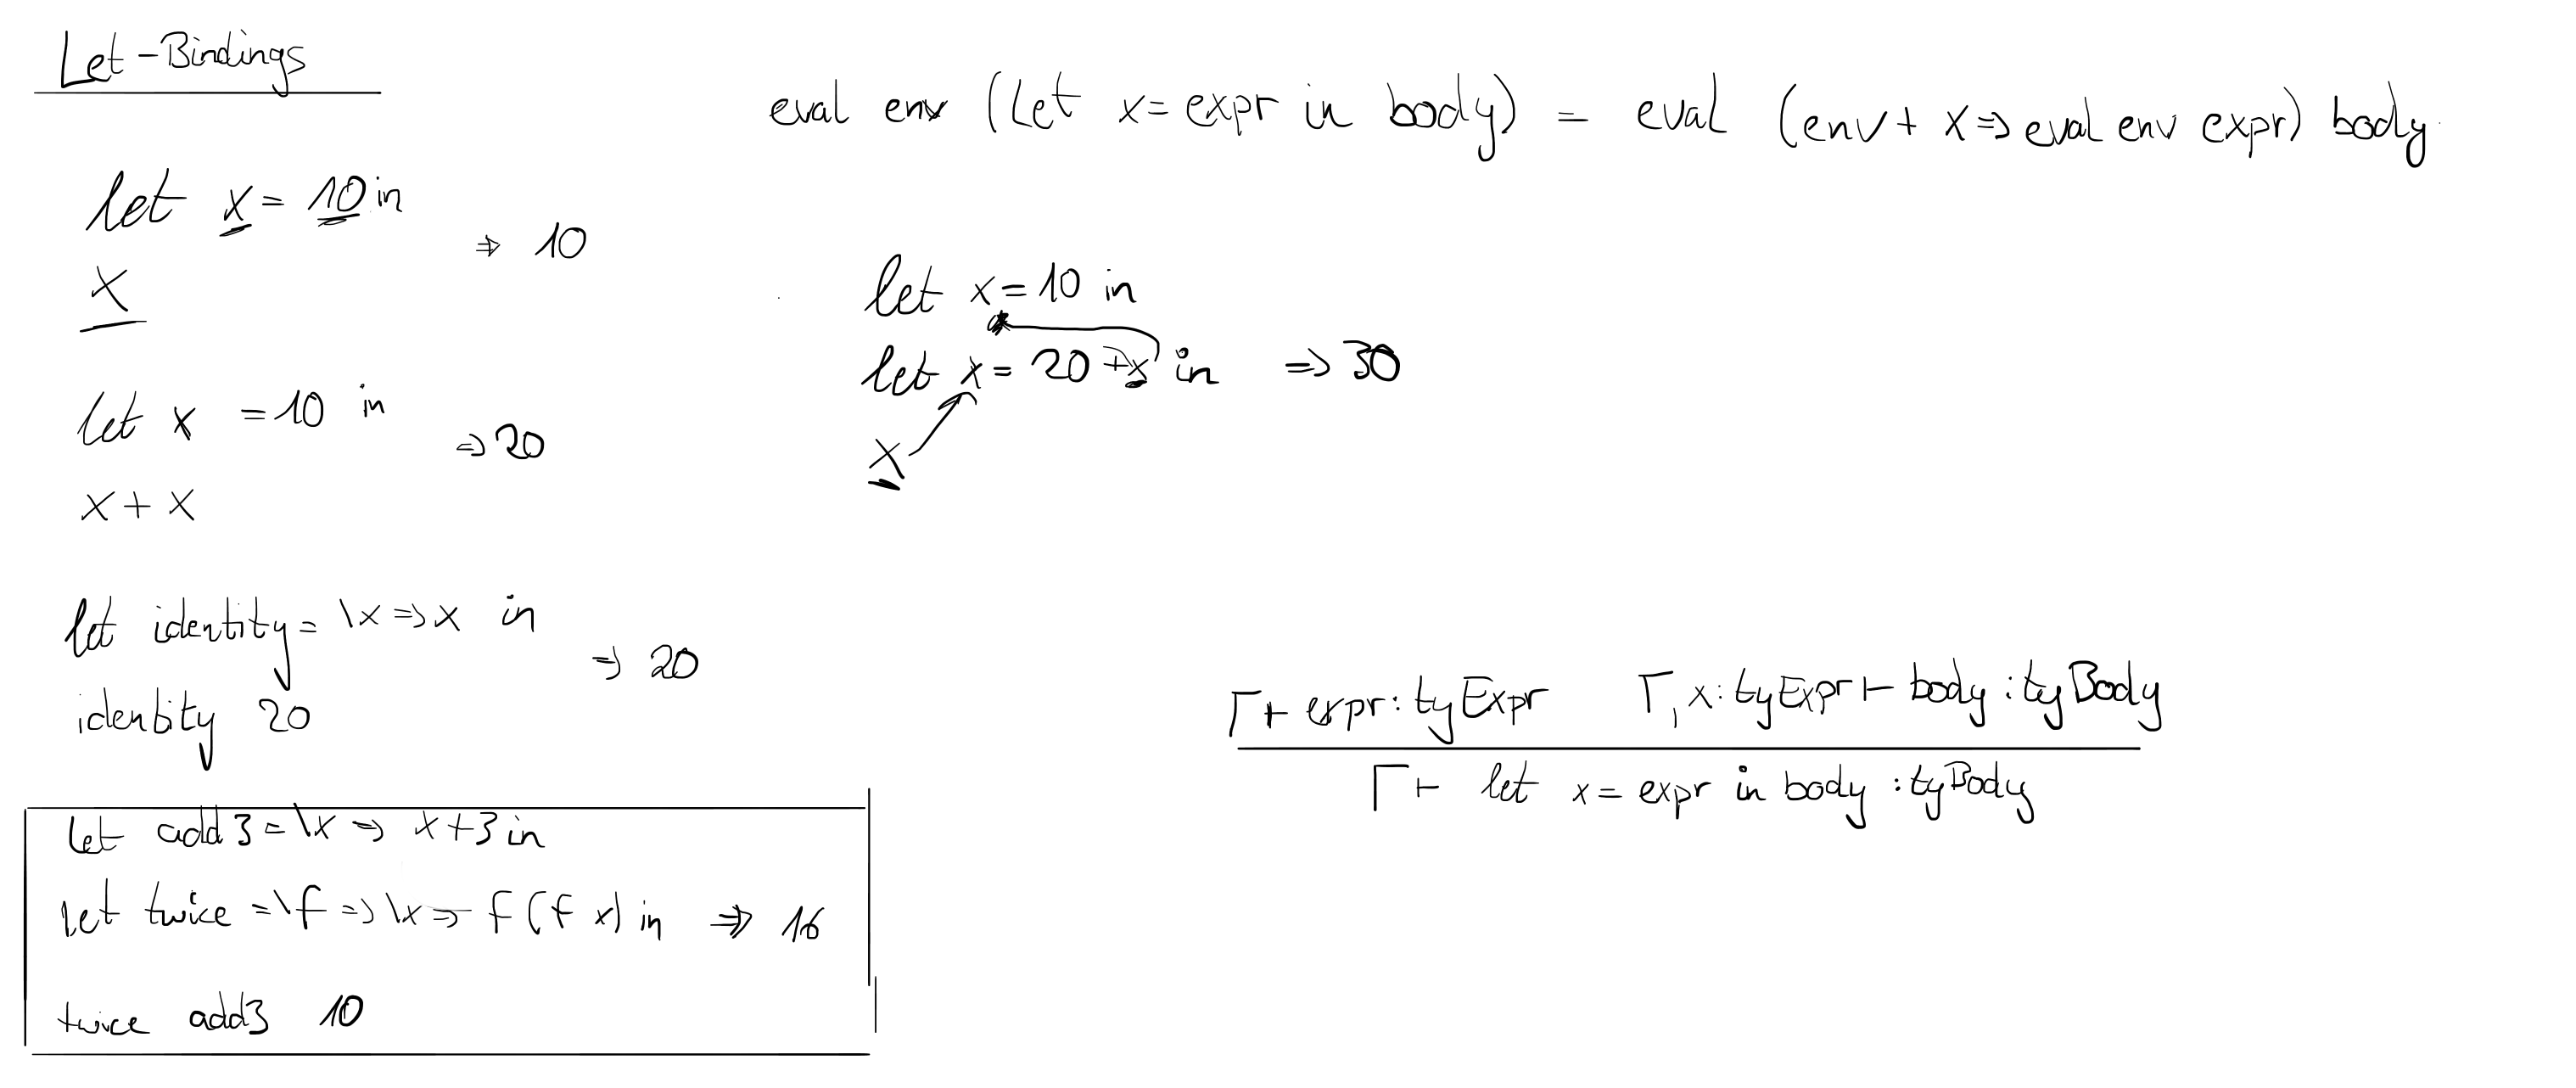 Let-Bindings
let x = 10 in
x
⇒ 10
let x = 10 in
x + x
⇒ 20
let identity = \x ⇒ x in
identity 20
⇒ 20
let add3 = \x ⇒ x + 3 in
let twice = \f ⇒ \x ⇒ f (f x) in ⇒ 16
twice add3 10
eval env (Let x = expr in body) = eval (env + x ⇒ eval env expr) body
let x = 10 in
let x = 20 + x in ⇒ 30
x
Γ ⊢ expr : tyExpr Γ, x : tyExpr ⊢ body : tyBody
Γ ⊢ let x = expr in body : tyBody